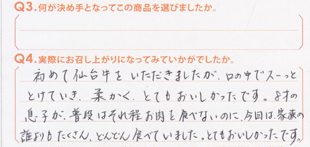 Q3.何が決め手となってこの商品を選びましたか。
Q4.実際にお召し上がりになってみていかがでしたか。
初めて仙台牛をいただきましたが、口の中でスーッと
とけていき、柔かく、とてもおいしかったです。8才の
息子が、普段はそれ程お肉を食べないのに、今回は、家族の
誰よりもたくさん、どんどん食べていました。とてもおいしかったです。